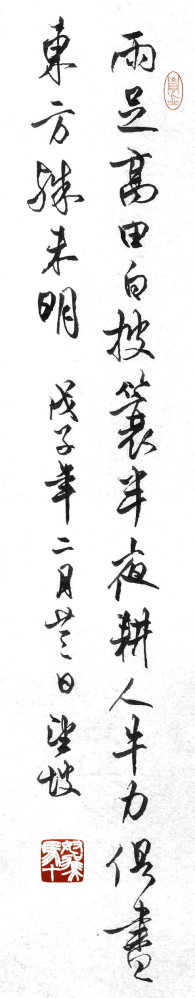 雨足高田白披蓑半夜耕人牛力俱盡
東方殊未明 戊子年二月廿三日望坡